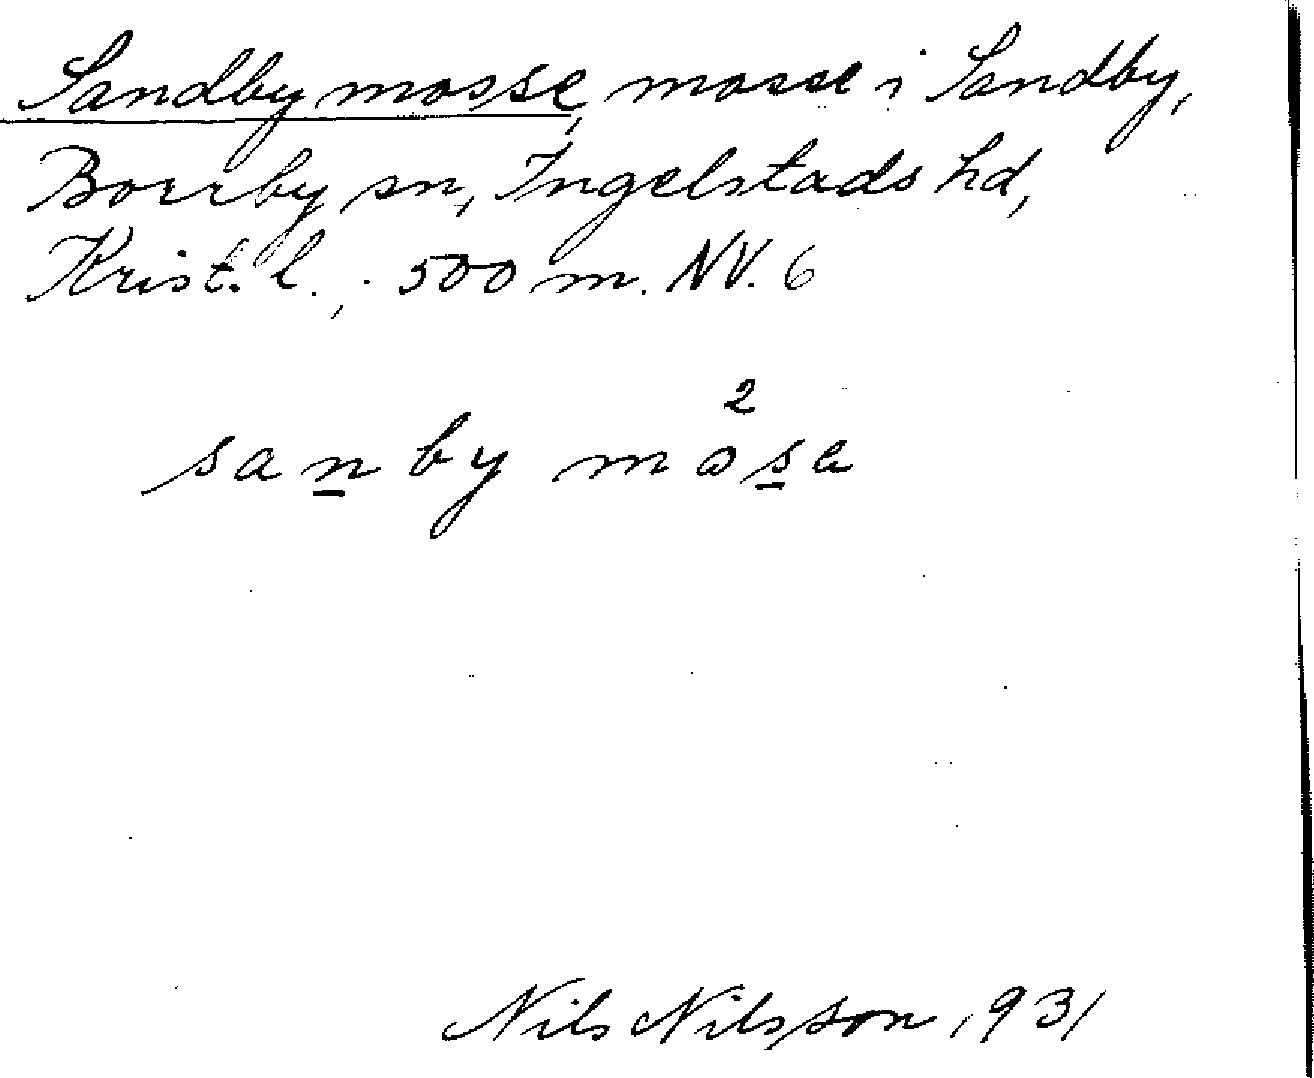 Sandby mosse, mosse i Sandby,
Borrby sn, Ingelstads hd,
Krist. l., 500 m. NV. 6
2
sanby mosa
Nils Nilsson, 931